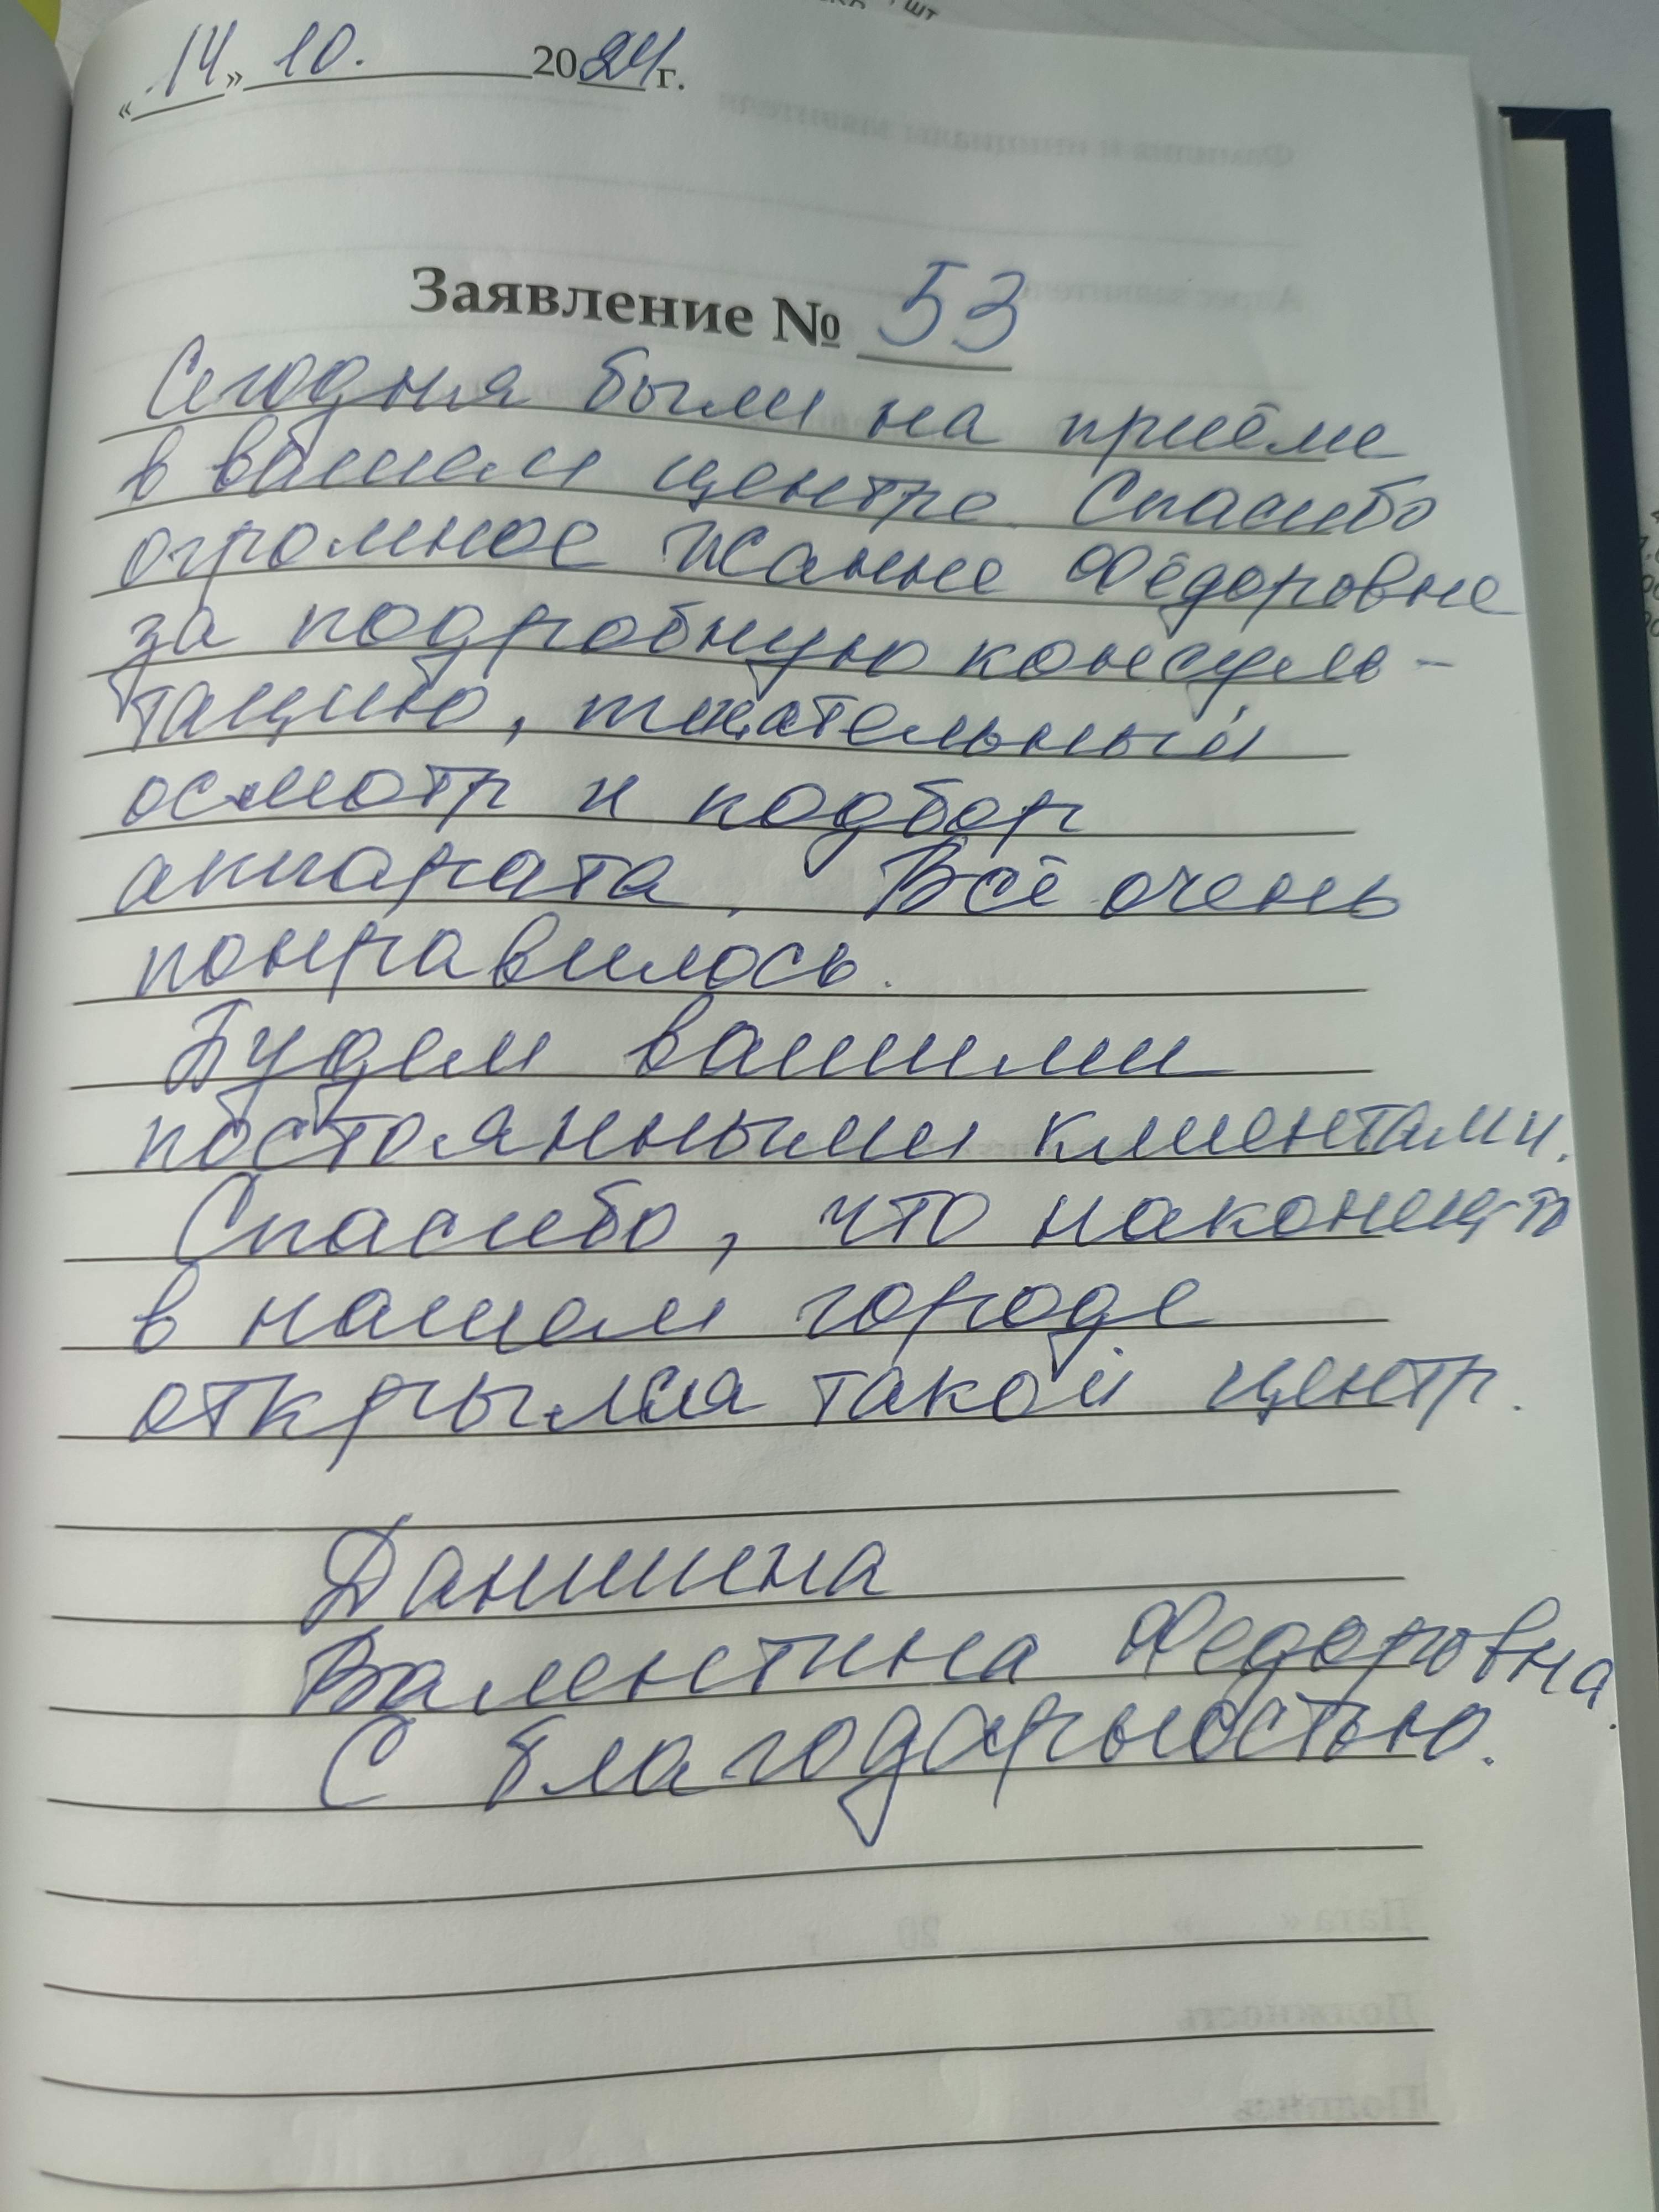 «14» 10. 2024 г.
Заявление № 53
Сегодня были на приёме
в вашем центре. Спасибо
огромное Жанне Фёдоровне
за подробную консуль-
тацию, тщательный
осмотр и подбор
аппарата. Всё очень
понравилось.
Будем вашими
постоянными клиентами.
Спасибо, что наконец-то
в нашем городе
открылся такой центр.
Данишена
Валентина Федоровна.
С благодарностью.